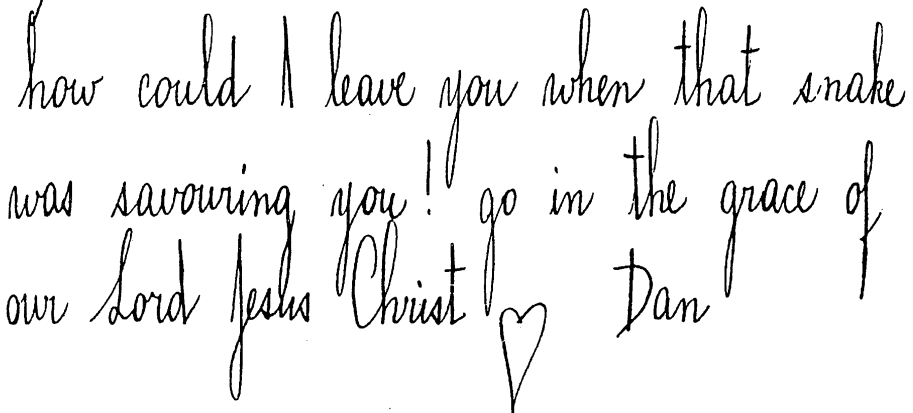 how could I leave you when that snake
was savouring you! go in the grace of
our Lord Jesus Christ Dan